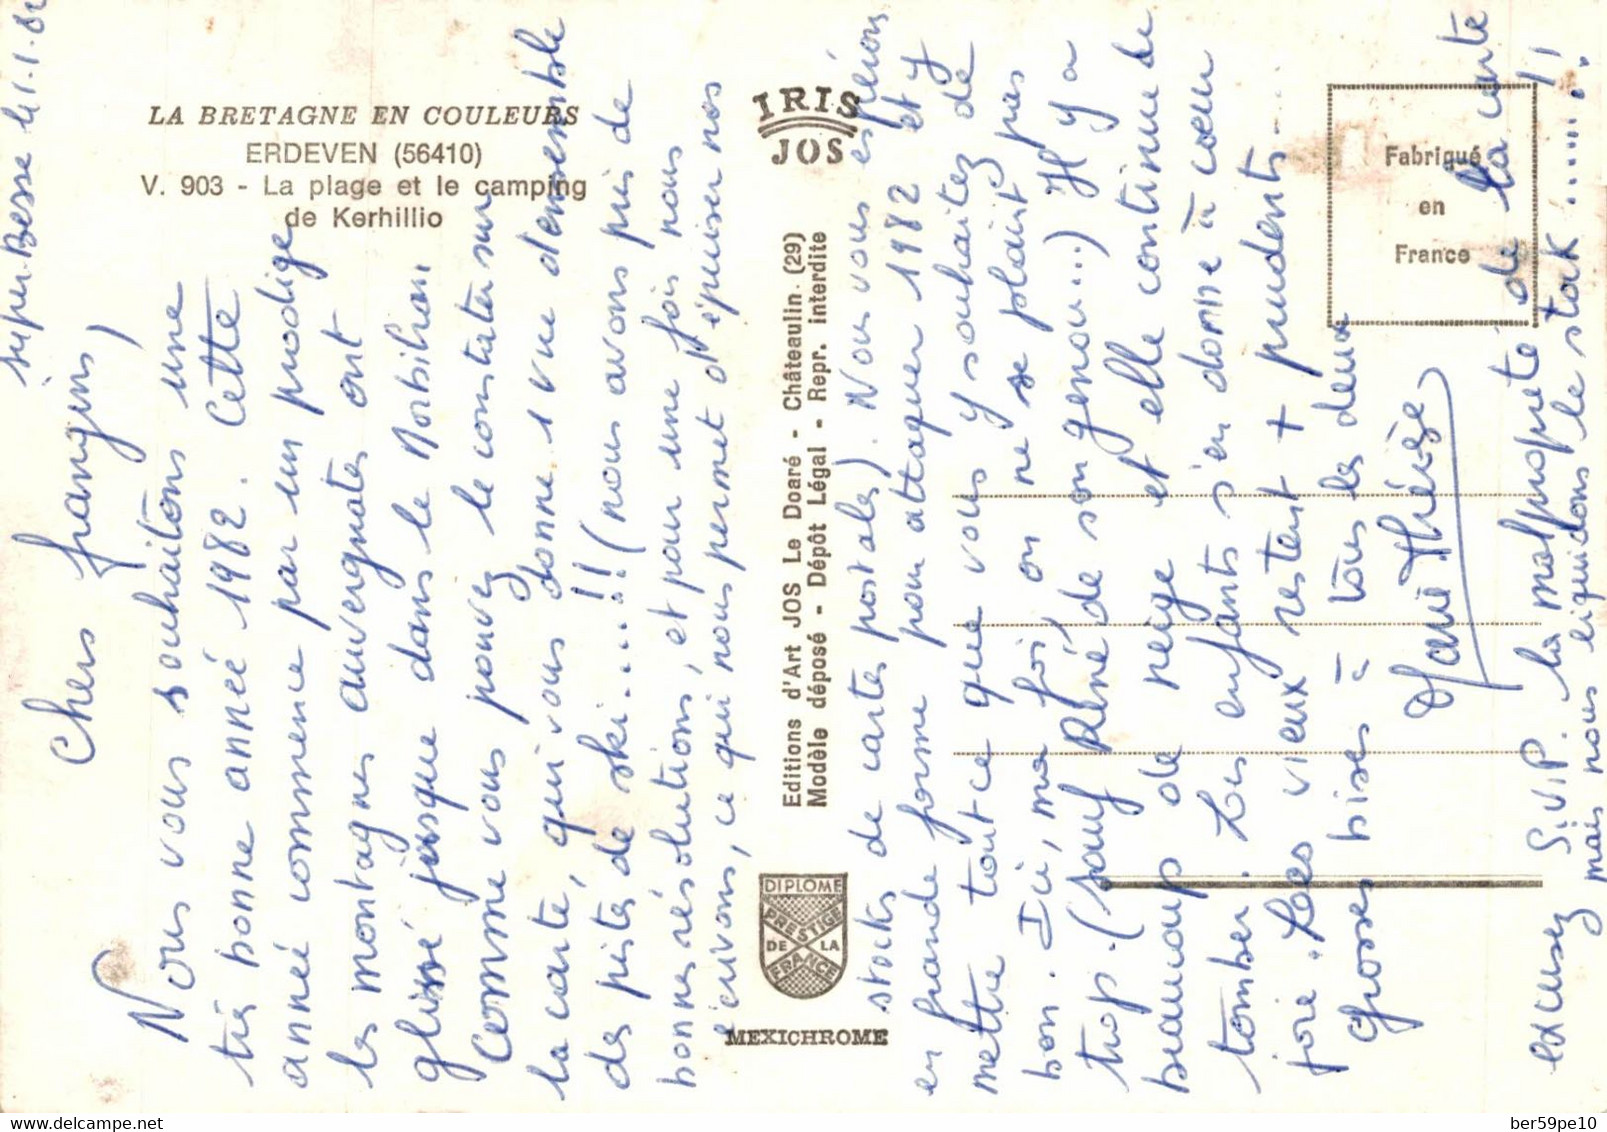 LA BRETAGNE EN COULEURS
ERDEVEN (56410)
V. 903 - La plage et le camping
de Kerhillio
IRIS
JOS
Fabriqué
en
France
Editions d'Art JOS Le Doaré - Châteaulin (29)
Modèle déposé - Dépôt Légal - Repr. interdite
DIPLOME
PRESTIGE
DE LA
FRANCE
MEXICHROME
Super-Besse le 1.1.82
Chers frangins,
Nous vous souhaitons une
très bonne année 1982. Cette
année commence par un prodige
les montagnes auvergnates ont
glissé jusque dans le Morbihan
Comme vous pouvez le constater sur
la carte, qui vous donne 1 vue d'ensemble
des pistes de ski.....!! (nous avons pris de
bonnes résolutions, et pour une fois nous
écrivons, ce qui nous permet d'épuiser nos
stocks de cartes postales). Nous vous espérons
en grande forme pour attaquer 1982 et y
mettre tout ce que vous y souhaitez de
bon. Ici, ma foi on ne se plaint pas
trop. (sauf René de son genou...) Il y a
beaucoup de neige et elle continue de
tomber. Les enfants s'en donne à coeur
joie. Les vieux restent + prudents...
Grosses bises à tous les deux
Marie Thérèse
excusez S.V.P. la malpropreté de la carte
mais nous liquidons le stok ......!!
ber59pe10